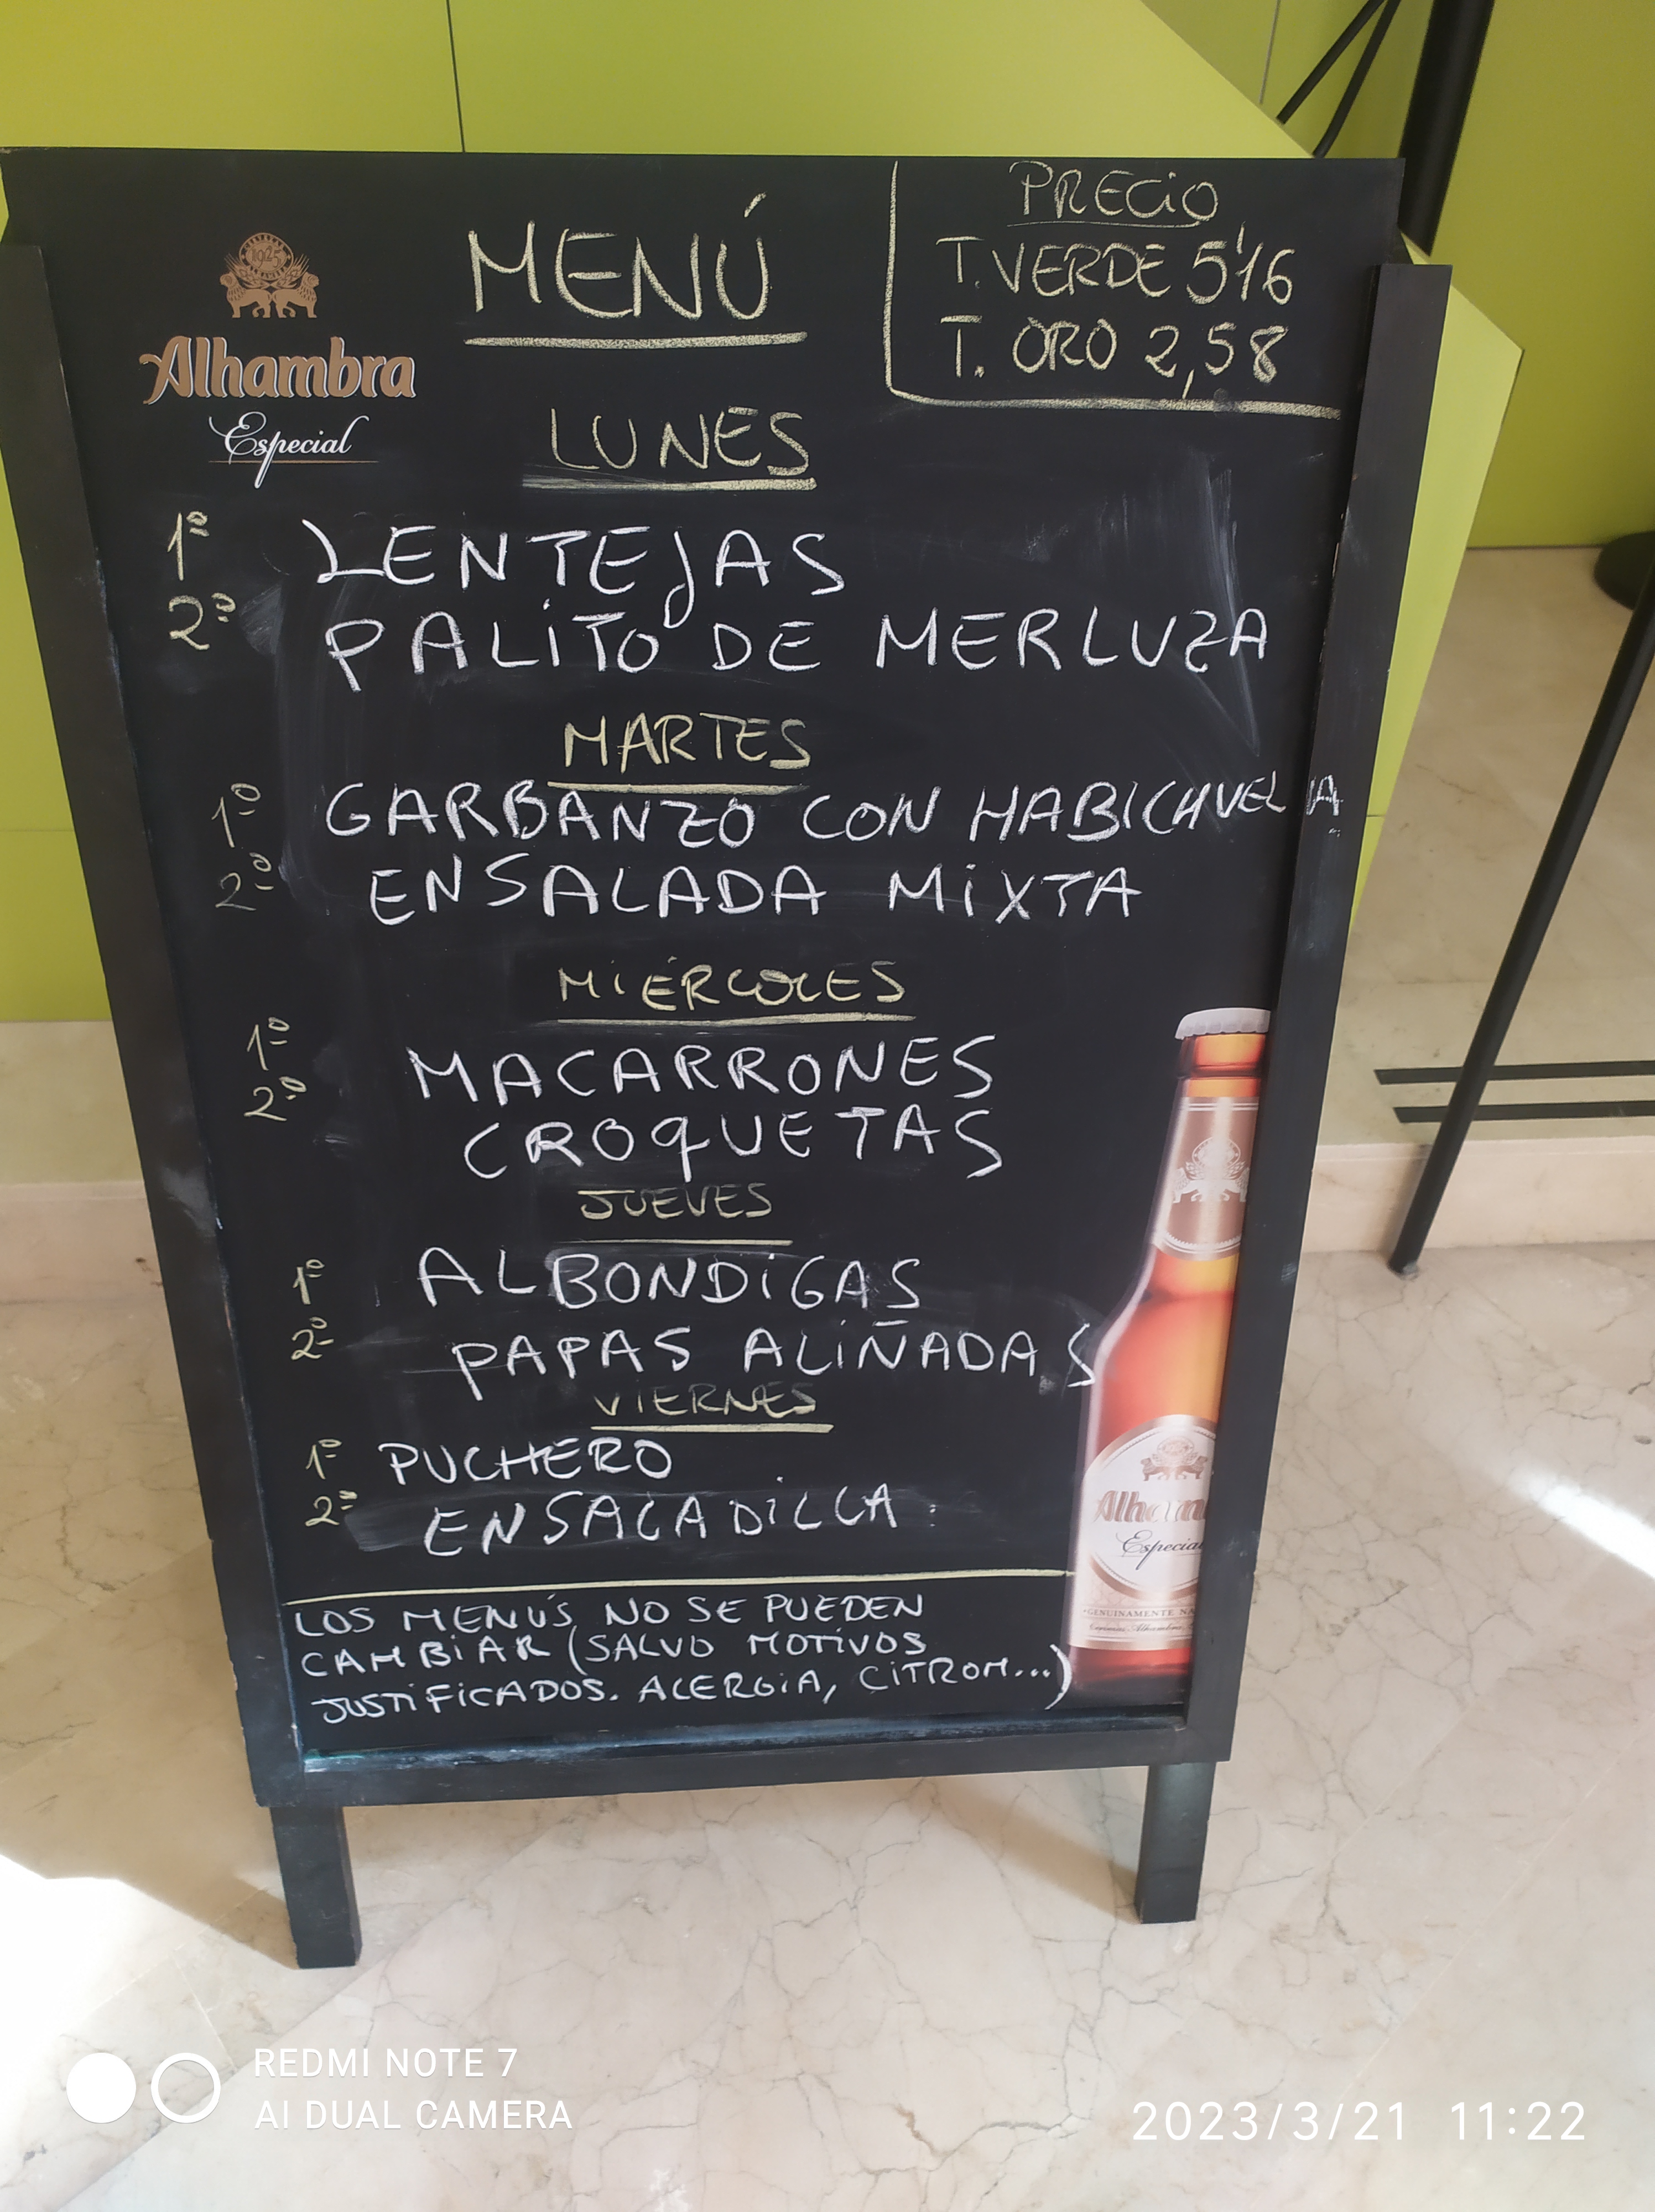 MENÚ
PRECiO
T.VERDE 5'16
T. ORO 2,58
1925
Alhambra
Especial
LUNES
1º LENTEJAS
2º PALiTO DE MERLUZA
MARTES
1º GARBANZO CON HABICHUELA
2º ENSALADA MiXTA
MiÉRCOLES
1º MACARRONES
2º CROQUETAS
JUEVES
1º ALBONDiGAS
2º PAPAS ALiÑADAS
VIERNES
1º PUCHERO
2º ENSALADiLLA
LOS MENÚS NO SE PUEDEN
CAMBiAR (SALVO MOTiVOS
JUSTiFiCADOS. ALERGiA, CiTROM...)
Alham
Especial
GENUINAMENTE NA
REDMI NOTE 7
AI DUAL CAMERA
2023/3/21 11:22